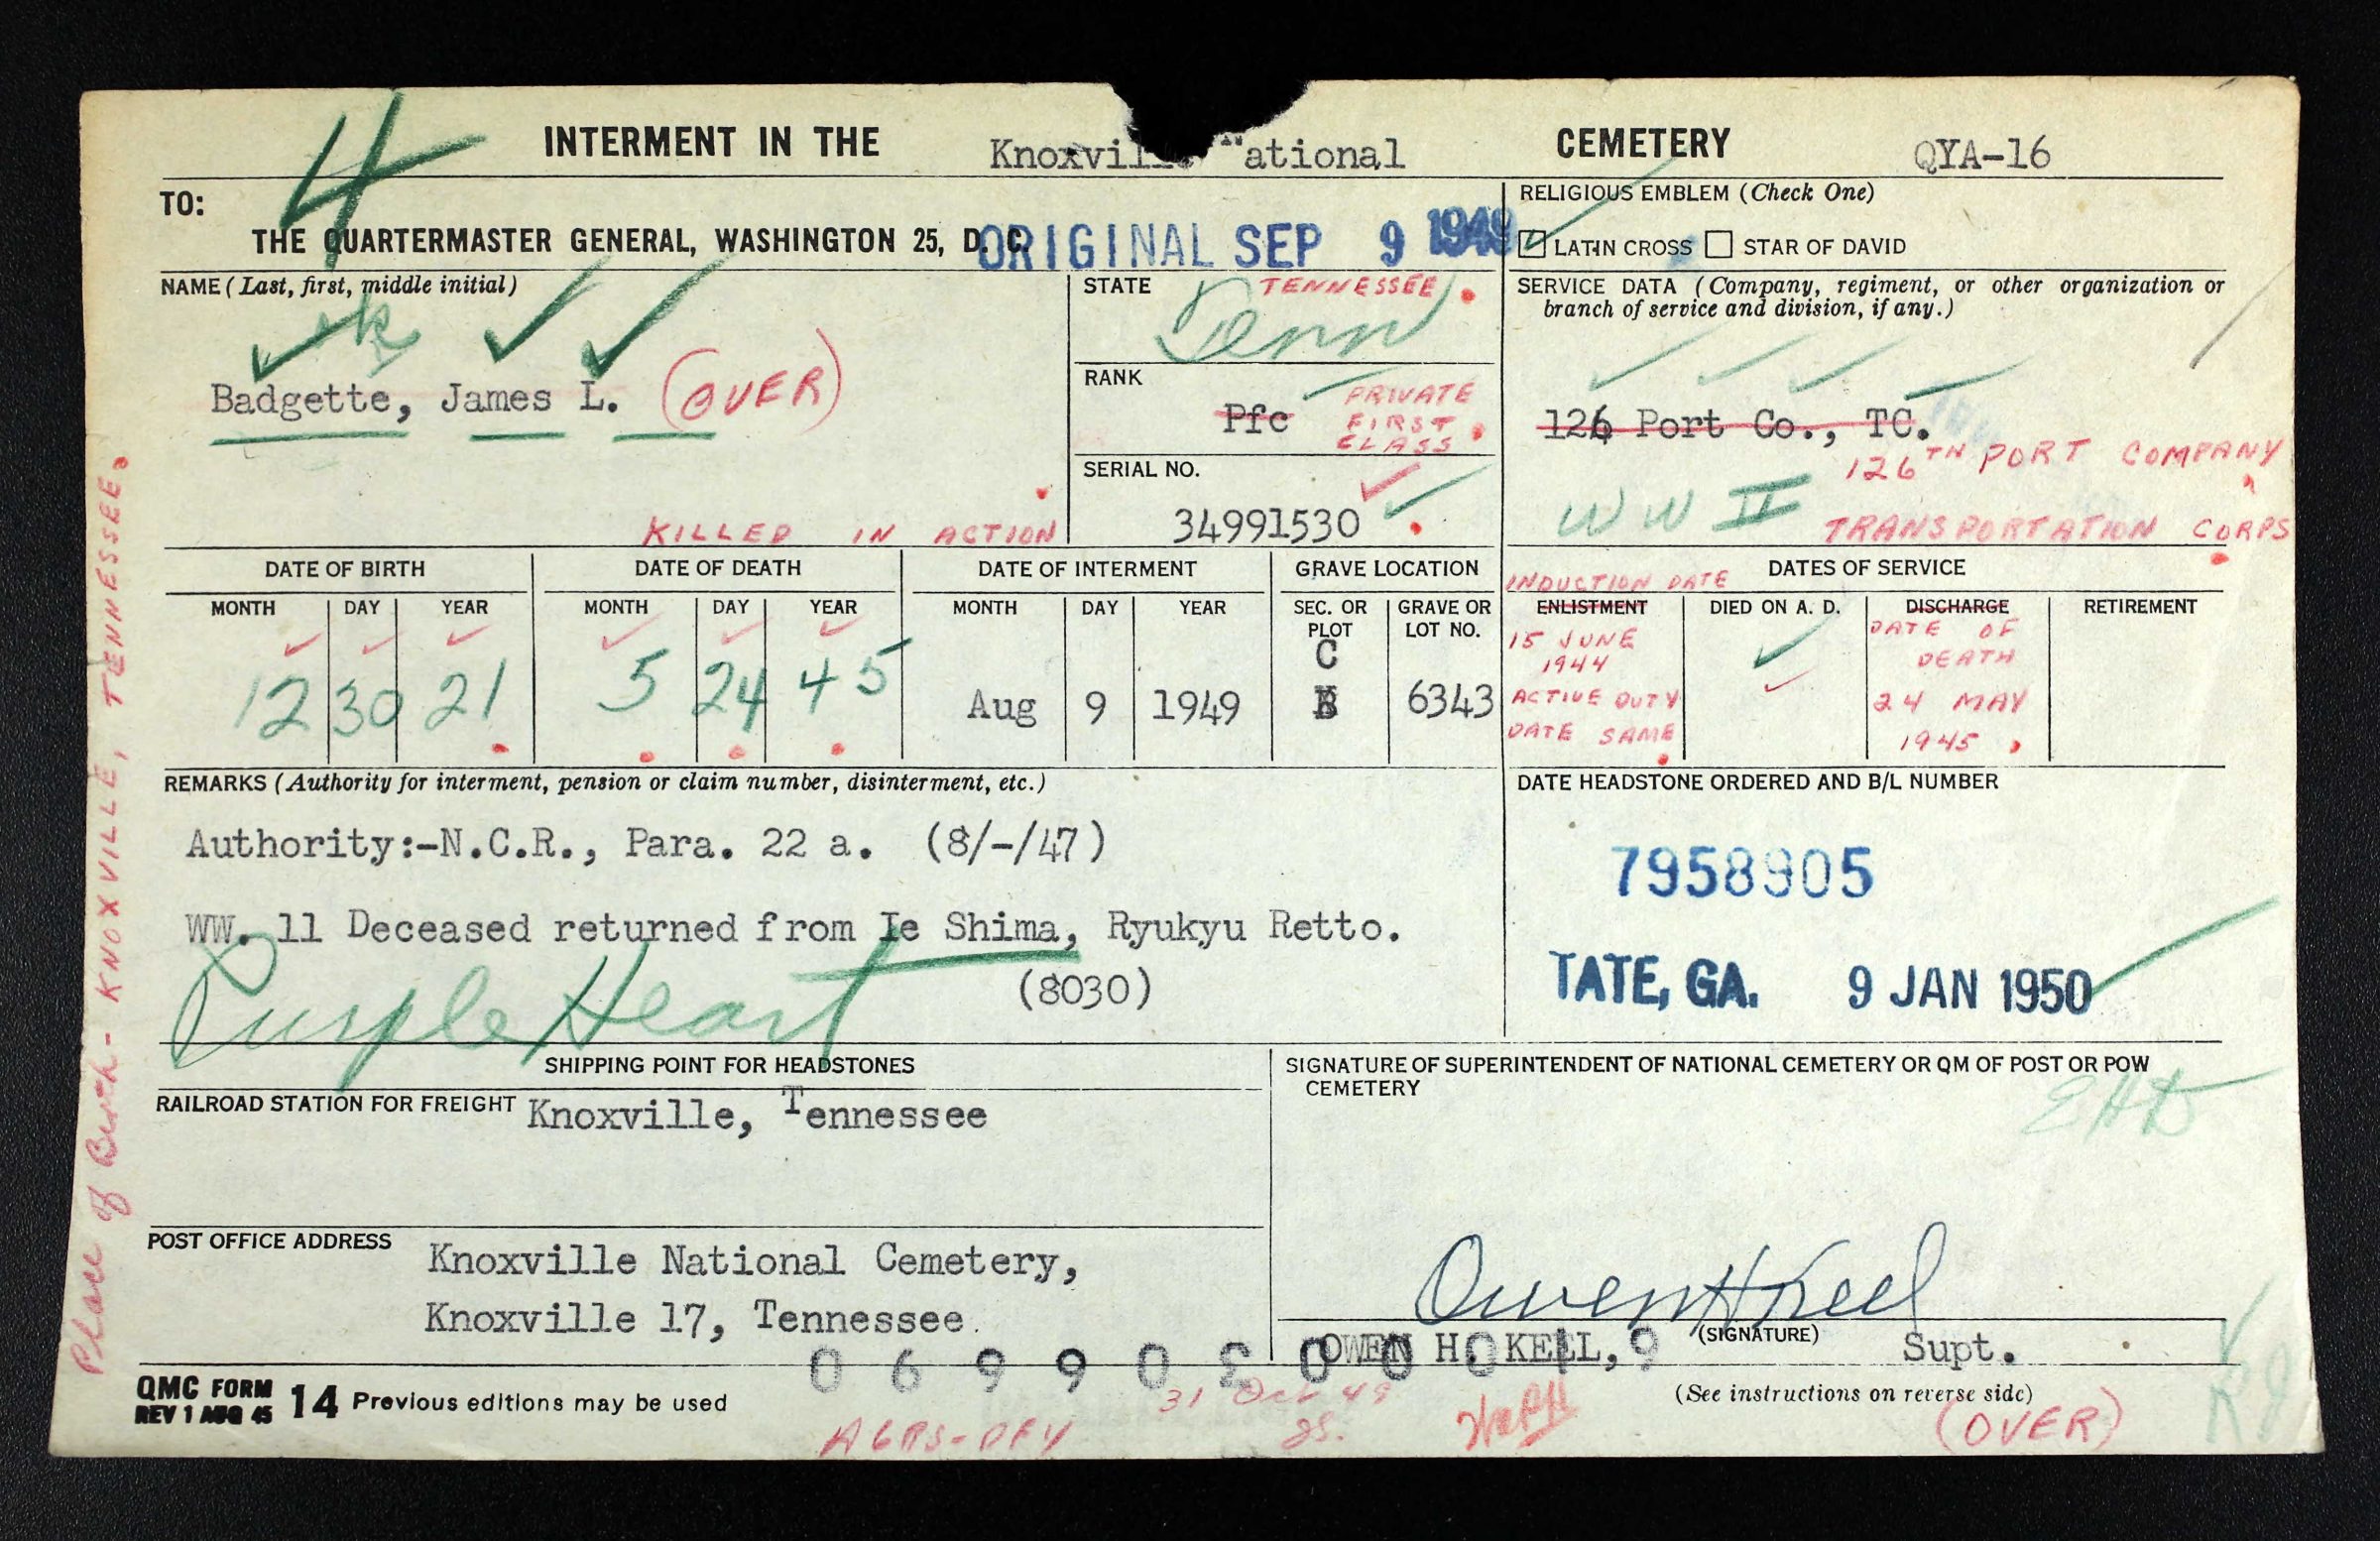 INTERMENT IN THE Knoxville National CEMETERY QYA-16
TO:
THE QUARTERMASTER GENERAL, WASHINGTON 25, D. C.
ORIGINAL SEP 9 1949
4
RELIGIOUS EMBLEM (Check One)
LATIN CROSS STAR OF DAVID
NAME (Last, first, middle initial)
ok
Badgette, James L. (OVER)
KILLED IN ACTION
STATE TENNESSEE.
Tenn
RANK
Pfc PRIVATE
FIRST
CLASS.
SERIAL NO.
34991530
SERVICE DATA (Company, regiment, or other organization or
branch of service and division, if any.)
126 Port Co., TC.
126TH PORT COMPANY,
WW II TRANSPORTATION CORPS.
DATE OF BIRTH
MONTH DAY YEAR
12 30 21
DATE OF DEATH
MONTH DAY YEAR
5 24 45
DATE OF INTERMENT
MONTH DAY YEAR
Aug 9 1949
GRAVE LOCATION
SEC. OR PLOT
C
B
GRAVE OR LOT NO.
6343
DATES OF SERVICE
INDUCTION DATE
ENLISTMENT
15 JUNE
1944
ACTIVE DUTY
DATE SAME.
DIED ON A. D.
DISCHARGE
DATE OF
DEATH
24 MAY
1945.
RETIREMENT
REMARKS (Authority for interment, pension or claim number, disinterment, etc.)
Authority:-N.C.R., Para. 22 a. (8/-/47)
WW. 11 Deceased returned from Ie Shima, Ryukyu Retto.
(8030)
Purple Heart
DATE HEADSTONE ORDERED AND B/L NUMBER
7958905
TATE, GA. 9 JAN 1950
SHIPPING POINT FOR HEADSTONES
RAILROAD STATION FOR FREIGHT Knoxville, Tennessee
POST OFFICE ADDRESS Knoxville National Cemetery,
Knoxville 17, Tennessee.
SIGNATURE OF SUPERINTENDENT OF NATIONAL CEMETERY OR QM OF POST OR POW
CEMETERY
EHD
Owen H Keel
(SIGNATURE)
OWEN H. KEEL, Supt.
(See instructions on reverse side)
(OVER)
QMC FORM 14 Previous editions may be used
REV 1 AUG 45
31 Oct 49
JS.
Place of Birth- KNOXVILLE, TENNESSEE.